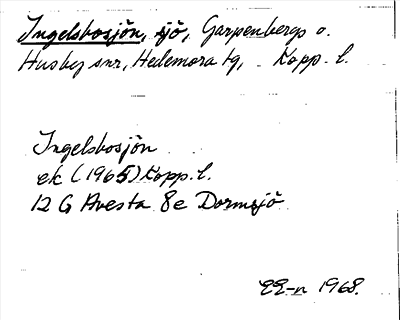 Ingelsbosjön, sjö, Garpenbergs o.
Husby snr, Hedemora tg, Kopp. l.
Ingelsbosjön
ek (1965) Kopp. l.
12 G Avesta 8e Dormsjö
EE-n 1968.